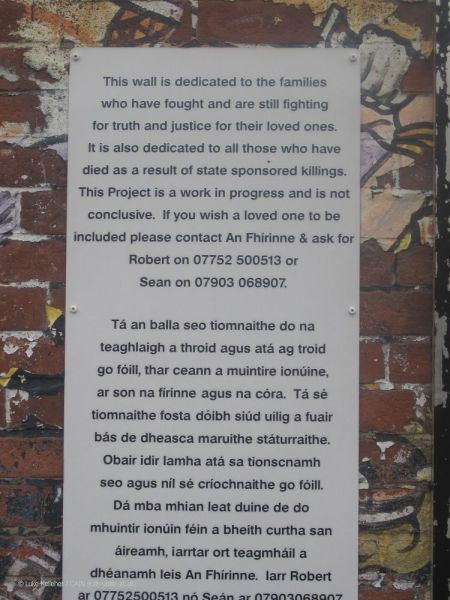 This wall is dedicated to the families
who have fought and are still fighting
for truth and justice for their loved ones.
It is also dedicated to all those who have
died as a result of state sponsored killings.
This Project is a work in progress and is not
conclusive. If you wish a loved one to be
included please contact An Fhírinne & ask for
Robert on 07752 500513 or
Sean on 07903 068907.
Tá an balla seo tiomnaithe do na
teaghlaigh a throid agus atá ag troid
go fóill, thar ceann a muintire ionúine,
ar son na fírinne agus na córa. Tá sé
tiomnaithe fosta dóibh siúd uilig a fuair
bás de dheasca maruithe státurraithe.
Obair idir lamha atá sa tionscnamh
seo agus níl sé críochnaithe go fóill.
Dá mba mhian leat duine de do
mhuintir ionúin féin a bheith curtha san
áireamh, iarrtar ort teagmháil a
dhéanamh leis An Fhírinne. Iarr Robert
ar 07752500513 nó Seán ar 07903068907
© Luke Kelleher / CAIN